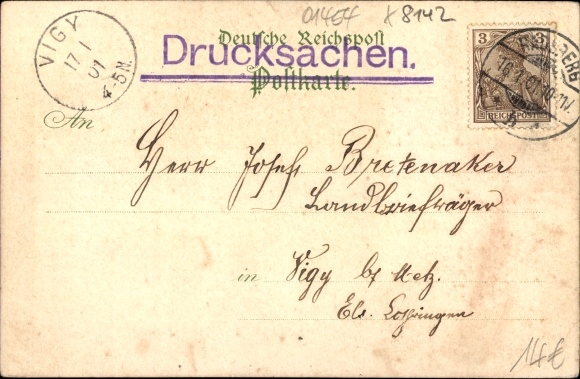 01454 K 8142
Deutsche Reichspost
Drucksachen.
Postkarte.
VIGY
17 1
01
4-5N.
3 3
REICHSPOST
An
Herrn Josef Bretenaker
Landbriefträger
in Vigy bz Metz.
Els. Lothringen
14€